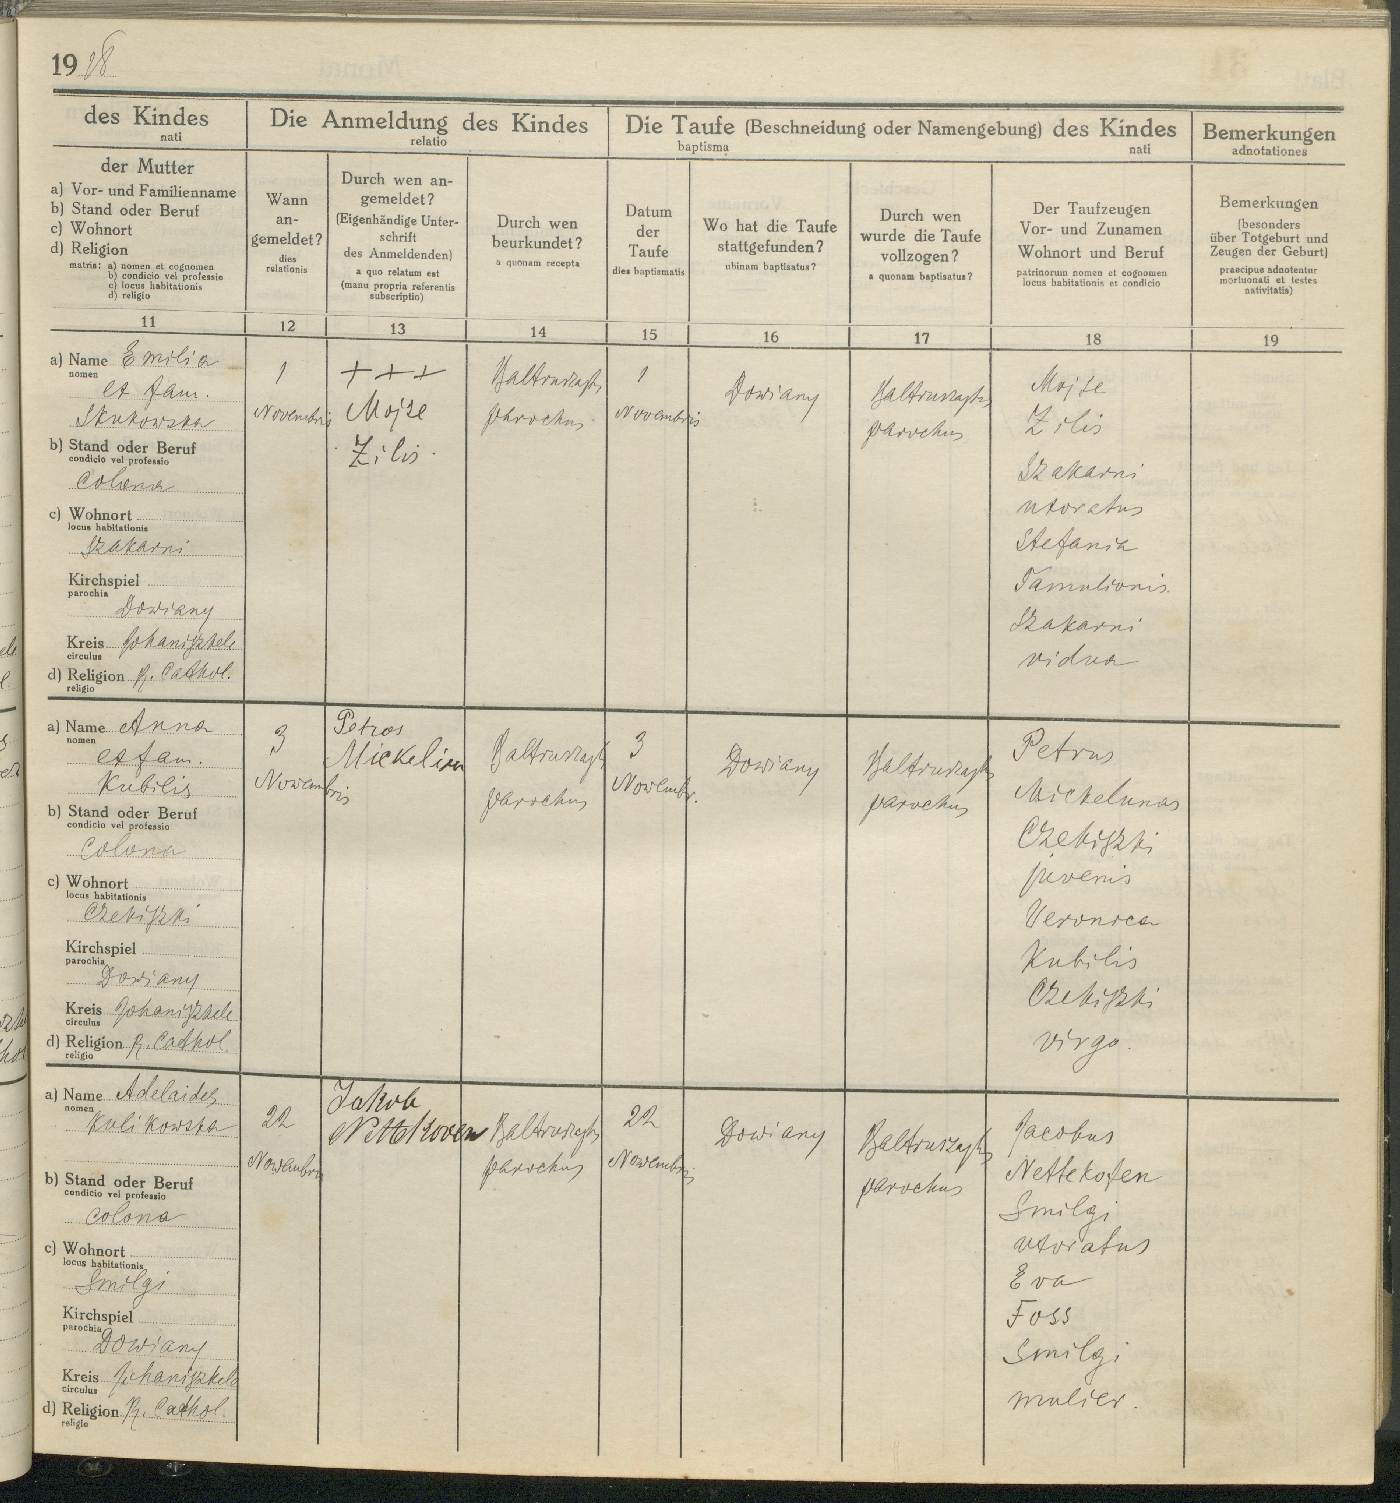 1918
des Kindes
nati
Die Anmeldung des Kindes
relatio
Die Taufe (Beschneidung oder Namengebung) des Kindes
baptisma nati
Bemerkungen
adnotationes
der Mutter
a) Vor- und Familienname
b) Stand oder Beruf
c) Wohnort
d) Religion
matris: a) nomen et cognomen
b) condicio vel professio
c) locus habitationis
d) religio
Wann
an-
gemeldet?
dies
relationis
Durch wen an-
gemeldet?
(Eigenhändige Unter-
schrift
des Anmeldenden)
a quo relatum est
(manu propria referentis
subscriptio)
Durch wen
beurkundet?
a quonam recepta
Datum
der
Taufe
dies baptismatis
Wo hat die Taufe
stattgefunden?
ubinam baptisatus?
Durch wen
wurde die Taufe
vollzogen?
a quonam baptisatus?
Der Taufzeugen
Vor- und Zunamen
Wohnort und Beruf
patrinorum nomen et cognomen
locus habitationis et condicio
Bemerkungen
(besonders
über Totgeburt und
Zeugen der Geburt)
praecipue adnotentur
mortuonati et testes
nativitatis)
11
12
13
14
15
16
17
18
19
a) Name Emilia
nomen
et fam.
Skukowska
b) Stand oder Beruf
condicio vel professio
colona
c) Wohnort
locus habitationis
Szakarni
Kirchspiel
parochia
Dowiany
Kreis Johaniszkele
circulus
d) Religion R. Cathol.
religio
1
Novembris
+++
Mojze
Zilis.
Baltruszajtis
parochus
1
Novembris
Dowiany
Baltruszajtis
parochus
Mojze
Zilis
Szakarni
uxoratus
Stefania
Tamulionis
Szakarni
vidua
a) Name Anna
nomen
et fam.
Kubilis
b) Stand oder Beruf
condicio vel professio
colona
c) Wohnort
locus habitationis
Czebiszki
Kirchspiel
parochia
Dowiany
Kreis Johaniszkele
circulus
d) Religion R. Cathol.
religio
3
Nowembris
Petras
Baltruszajtis
parochus
3
Nowembr.
Dowiany
Baltruszajtis
parochus
Petrus
Mickelunas
Czebiszki
juvenis
Veronica
Kubilis
Czebiszki
virgo.
a) Name Adelaides
nomen
Kulikowska
b) Stand oder Beruf
condicio vel professio
colona
c) Wohnort
locus habitationis
Smilgi
Kirchspiel
parochia
Dowiany
Kreis Johaniszkele
circulus
d) Religion R. Cathol.
religio
22
Nowembris
Jakob
Nettekoven
Baltruszajtis
parochus
22
Nowembris
Dowiany
Baltruszajtis
parochus
Jacobus
Nettekofen
Smilgi
uxoratus
Eva
Foss
Smilgi
mulier.